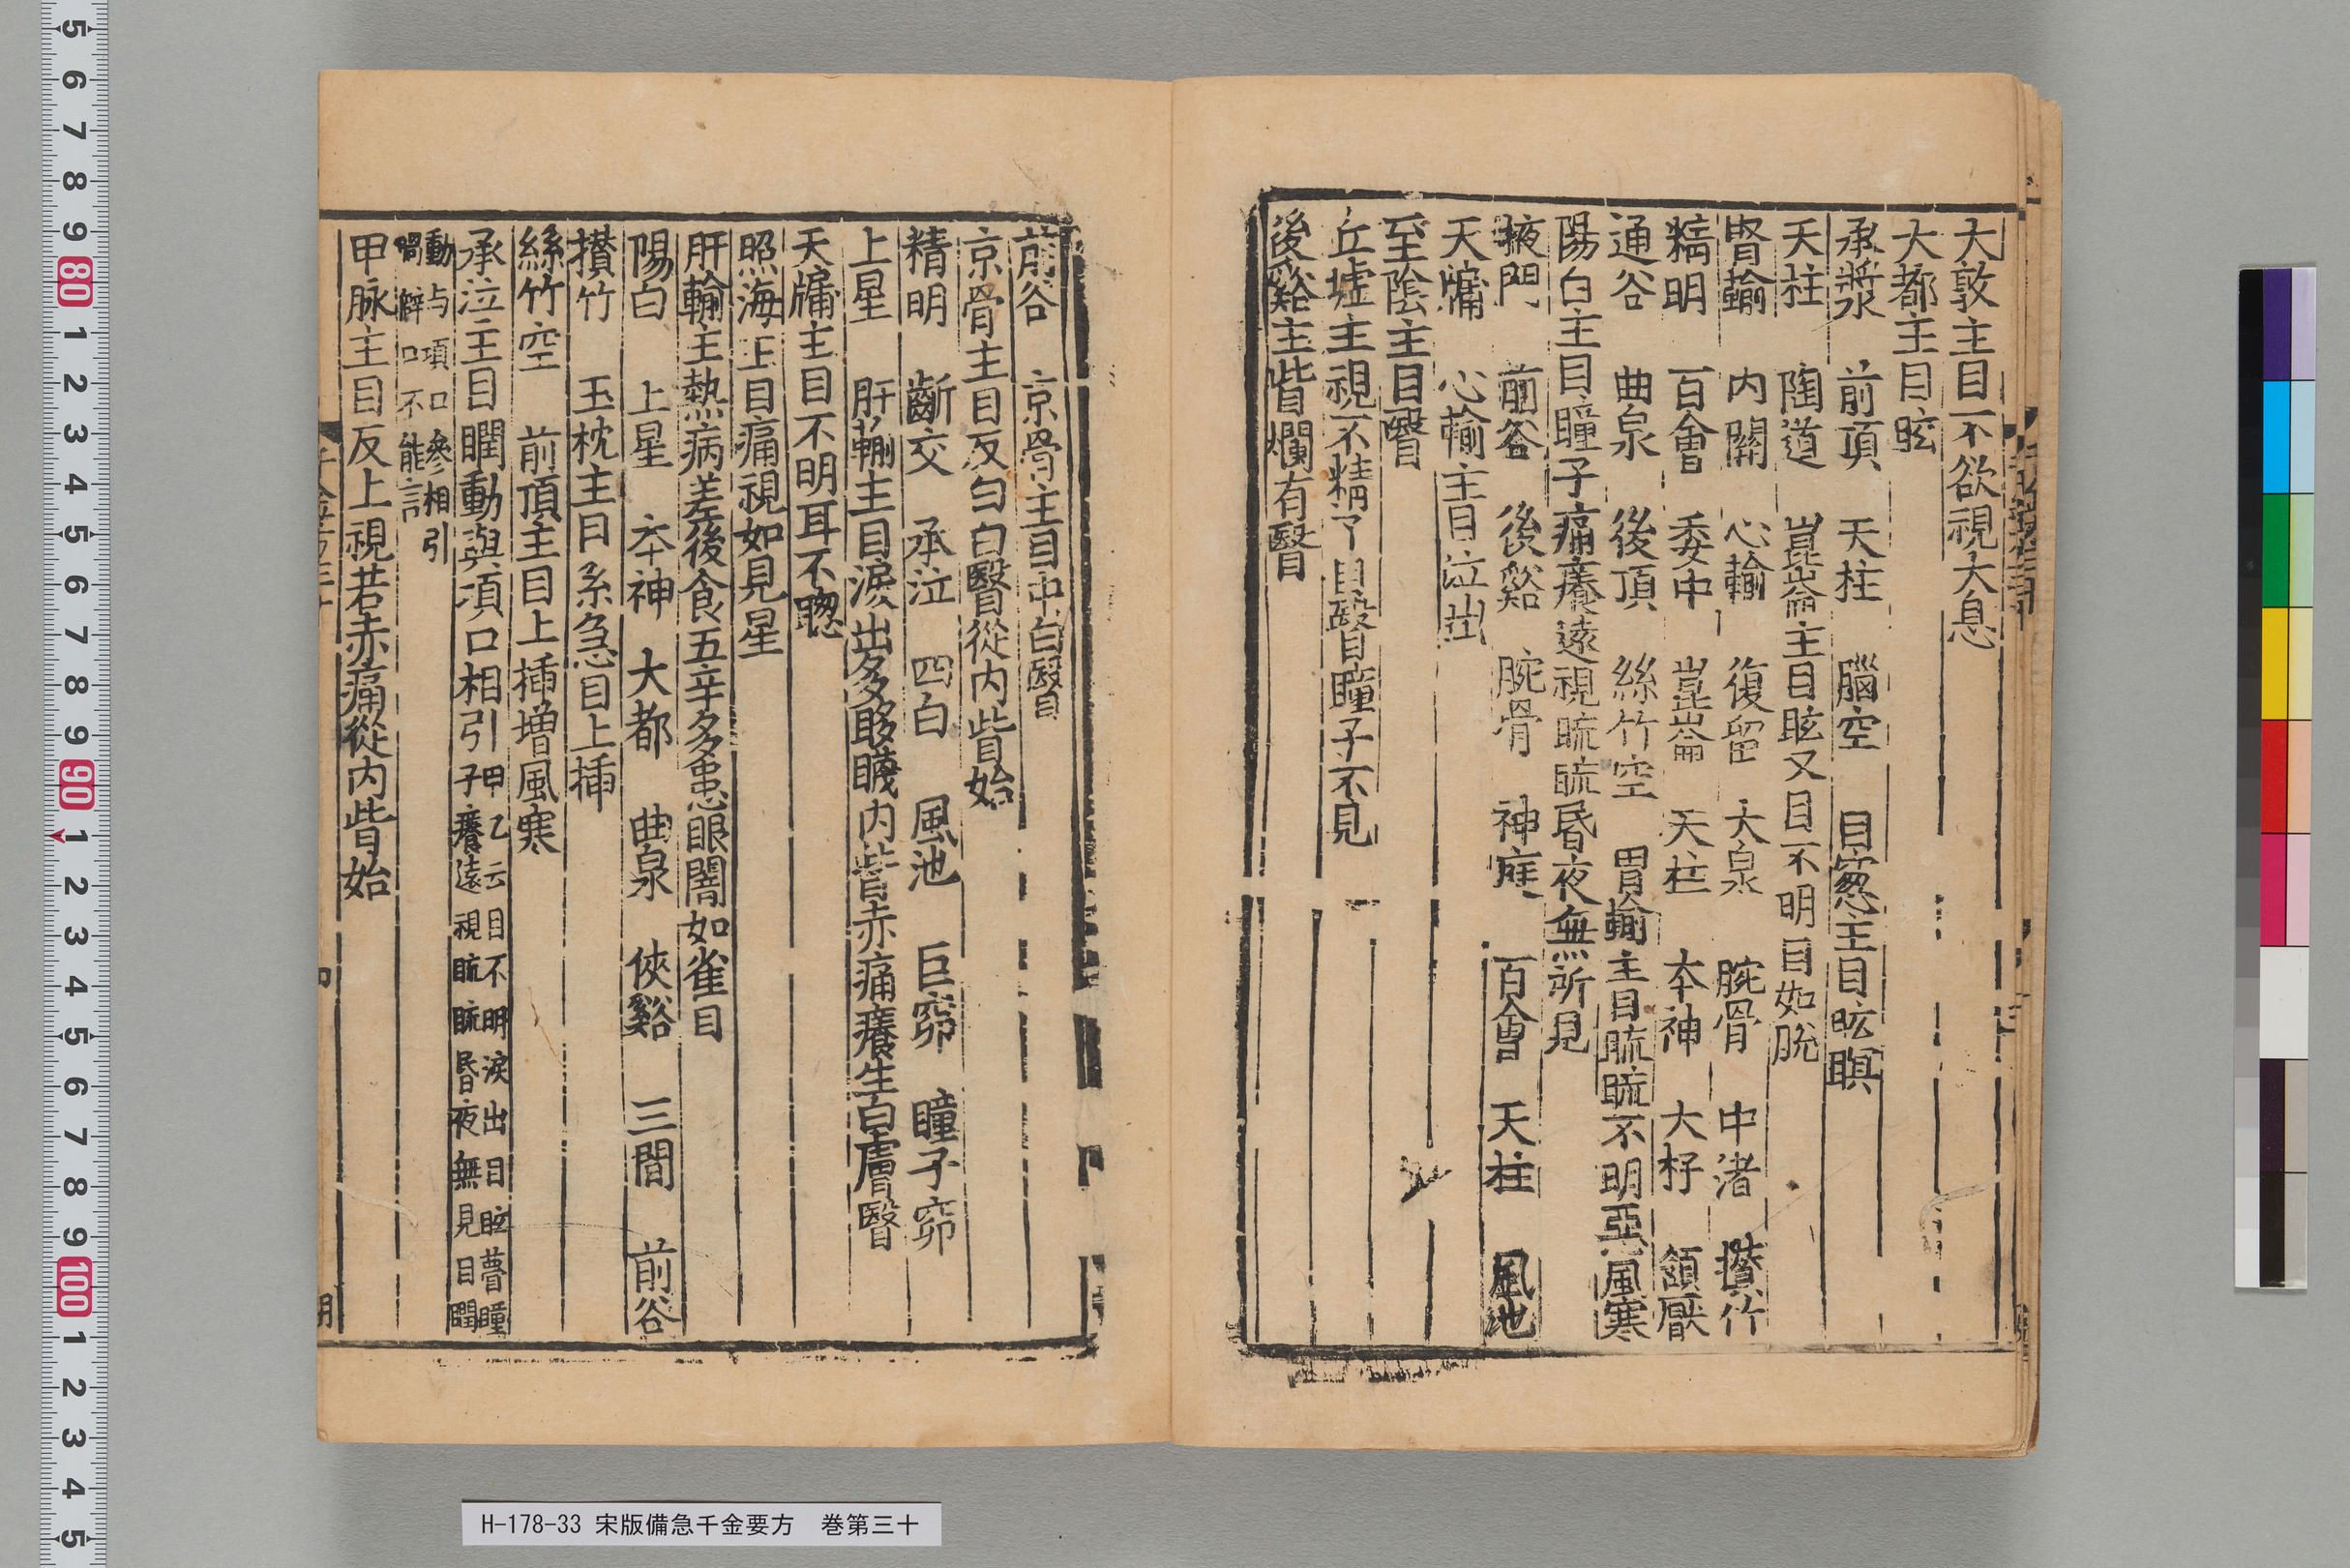 大敦主目不欲視大息
大都主目眩
承漿　前頂　天柱　腦空　目窻主目眩瞑
天柱　陶道　崑崙主目眩又目不明目如脫
腎輸　内關　心輸　復留　大泉　腕骨　中渚　攅竹
精明　百會　委中　崑崙　天柱　本神　大杼　頷厭
通谷　曲泉　後頂　絲竹空　胃輸主目䀮䀮不明惡風寒
陽白主目瞳子痛癢遠視䀮䀮昏夜無所見
掖門　前谷　後谿　腕骨　神庭　百會　天柱　風池
天牖　心輸主目泣出
至陰主目翳
丘墟主視不精了目翳瞳子不見
後谿主眥爛有翳
前谷　京骨主目中白翳
京骨主目反白白翳從内眥始
精明　齗交　承泣　四白　風池　巨窌　瞳子窌
上星　肝輸主目淚出多眵䁾内眥赤痛癢生白膚翳
天牖主目不明耳不聦
照海主目痛視如見星
肝輸主熱病差後食五辛多患眼闇如雀目
陽白　上星　本神　大都　曲泉　俠谿　三間　前谷
攅竹　玉枕主目系急目上插
絲竹空　前頂主目上插増風寒
承泣主目瞤動與項口相引甲乙云目不明淚出目眩瞢瞳
子癢遠視䀮䀮昏夜無見目瞤
動与項口參相引
喎僻口不能言
甲脉主目反上視若赤痛從内眥始
H-178-33 宋版備急千金要方　巻第三十